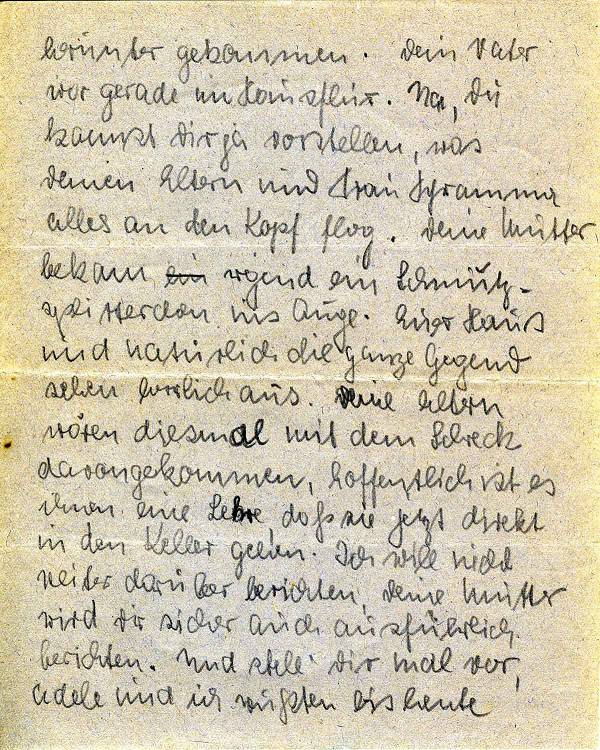 herunter gekommen. Dein Vater
war gerade im Hausflur. Na, du
kannst dir ja vorstellen, was
deinen Eltern und Frau Schramma
alles an den Kopf flog. Deine Mutter
bekam ein irgend ein Schmutz-
splitterchen ins Auge. Euer Haus
und natürlich die ganze Gegend
sehen herrlich aus. Deine Eltern
wären diesmal mit dem Schreck
davongekommen, hoffentlich ist es
ihnen eine Lehre daß sie jetzt direkt
in den Keller gehen. Ich will nicht
weiter darüber berichten, deine Mutter
wird dir sicher auch ausführlich
berichten. Und stell' dir mal vor,
Adele und ich wußten bis heute